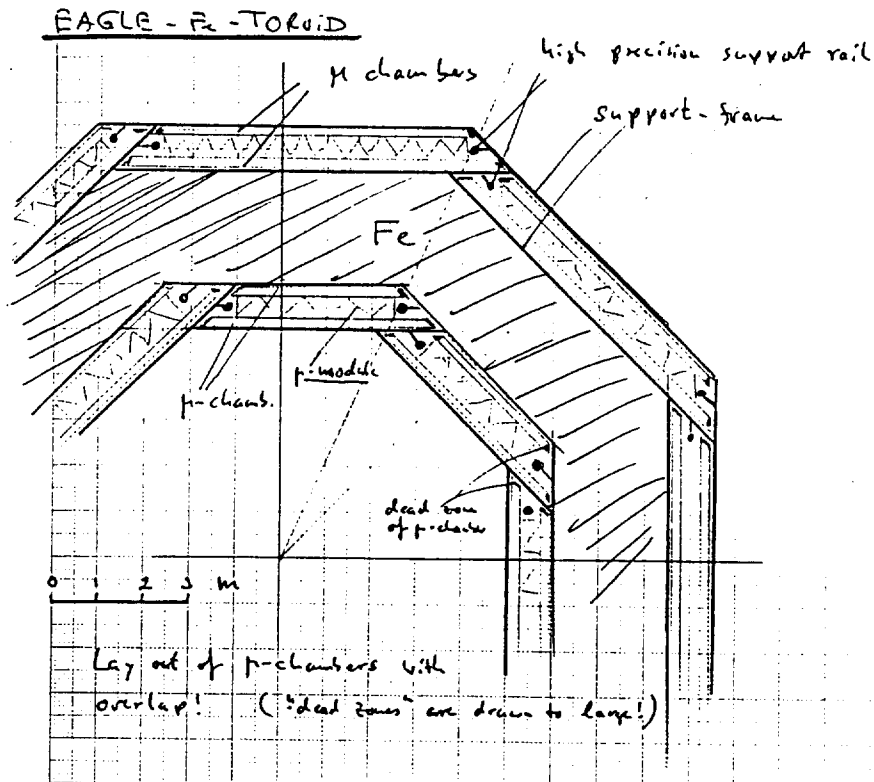 EAGLE - Fe - TOROID
μ chambers
high precision support rail
support-frame
Fe
μ-chamb.
μ-module
dead zone
of μ-chamber
0 1 2 3 m
Lay out of μ-chambers with
overlap! ("dead zones" are drawn to large!)